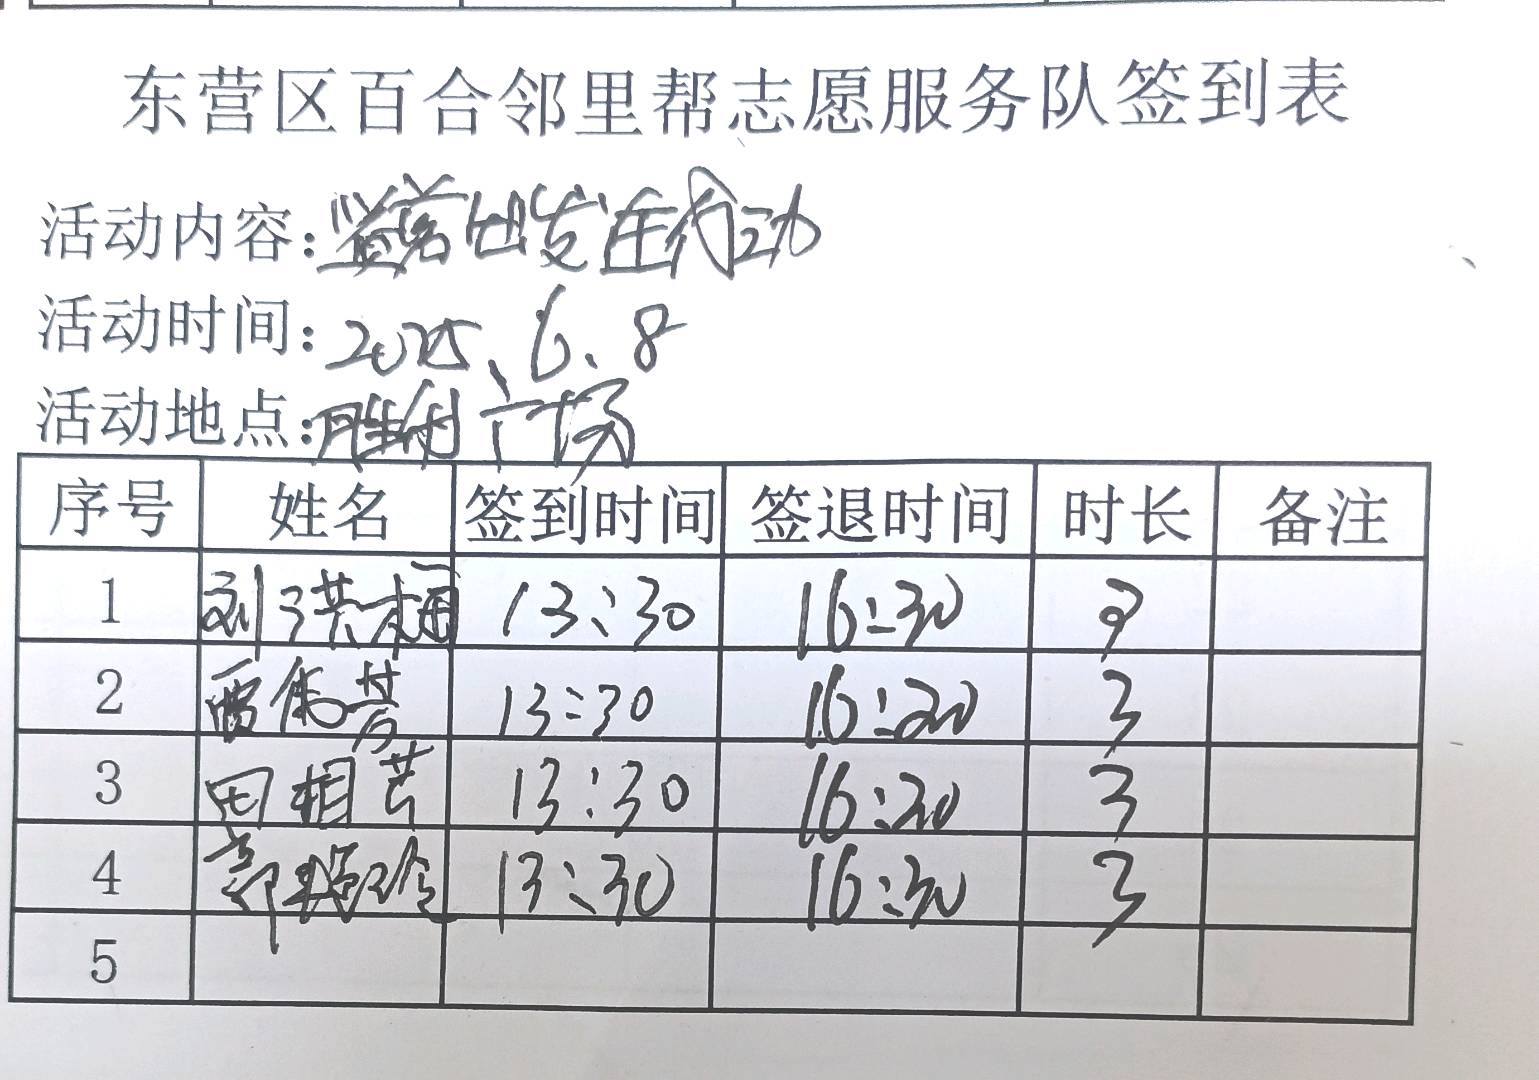 东营区百合邻里帮志愿服务队签到表
活动内容：出发主行动
活动时间：2025、6、8
活动地点：胜利广场
序号 姓名 签到时间 签退时间 时长 备注
1 刘洪梅 13:30 16:30 3
2 13:30 16:30 3
3 田相芹 13:30 16:30 3
4 郭 玲 13:30 16:30 3
5